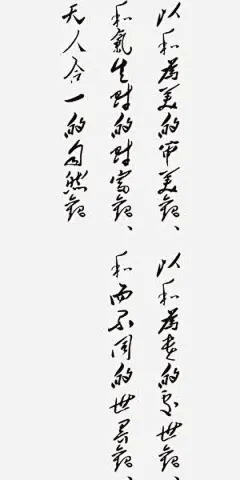 以和為美的审美觀、以和為贵的处世觀、
和氣生财的财富觀、和而不同的世界觀、
天人合一的自然觀